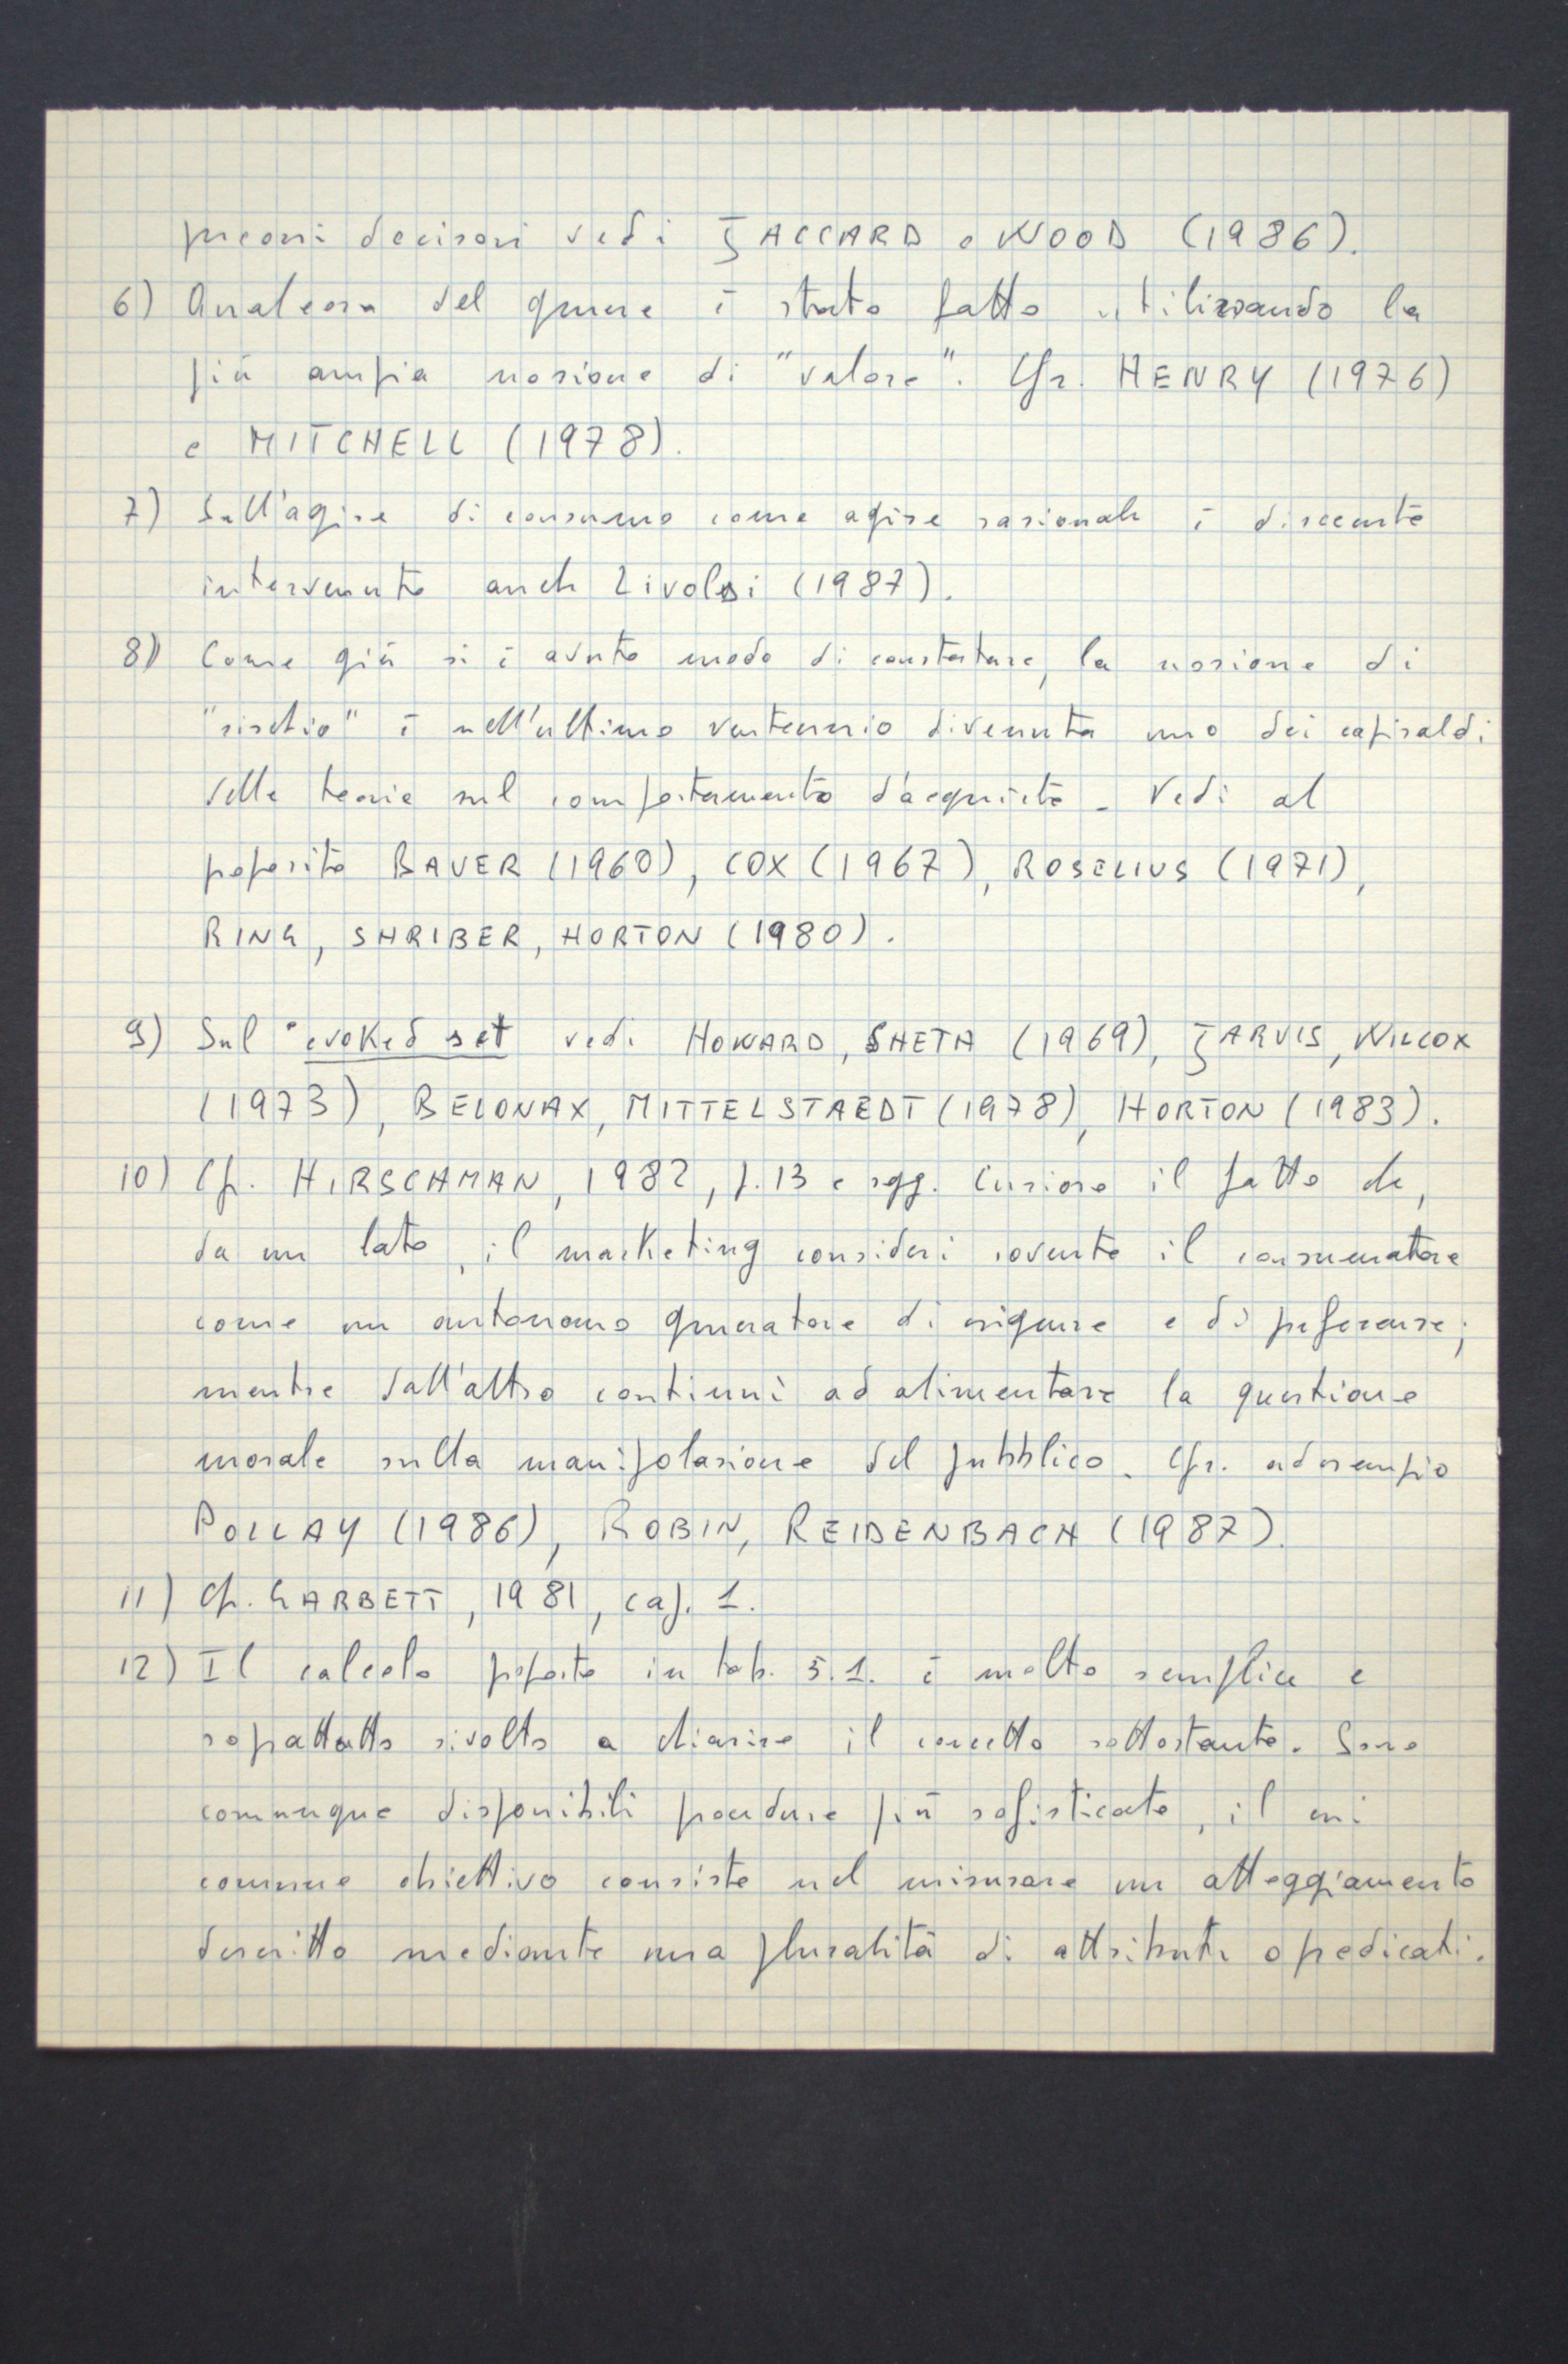 processi decisori vedi JACCARD e WOOD (1986).
6) Qualcosa del genere è stato fatto utilizzando la
più ampia nozione di "valore". Cfr. HENRY (1976)
e MITCHELL (1978).
7) Sull'agire di consumo come agire razionale è di recente
intervenuto anche Livolsi (1987).
8) Come già si è avuto modo di constatare, la nozione di
"rischio" è nell'ultimo ventennio divenuta uno dei capisaldi
delle teorie sul comportamento d'acquisto. Vedi al
proposito BAUER (1960), COX (1967), ROSELIUS (1971),
RING, SHRIBER, HORTON (1980).
9) Sul evoked set vedi HOWARD, SHETH (1969), JARVIS, WILCOX
(1973), BELONAX, MITTELSTAEDT (1978), HORTON (1983).
10) Cfr. HIRSCHMAN, 1982, p. 13 e sgg. Curioso il fatto che,
da un lato, il marketing consideri sovente il consumatore
come un autonomo generatore di esigenze e di preferenze;
mentre dall'altro continui ad alimentare la questione
morale sulla manipolazione del pubblico. Cfr. ad esempio
POLLAY (1986), ROBIN, REIDENBACH (1987).
11) Cfr. GARBETT, 1981, cap. 1.
12) Il calcolo proposto in tab. 5.1. è molto semplice e
soprattutto rivolto a chiarire il concetto sottostante. Sono
comunque disponibili procedure più sofisticate, il cui
comune obiettivo consiste nel misurare un atteggiamento
descritto mediante una pluralità di attributi o predicati.